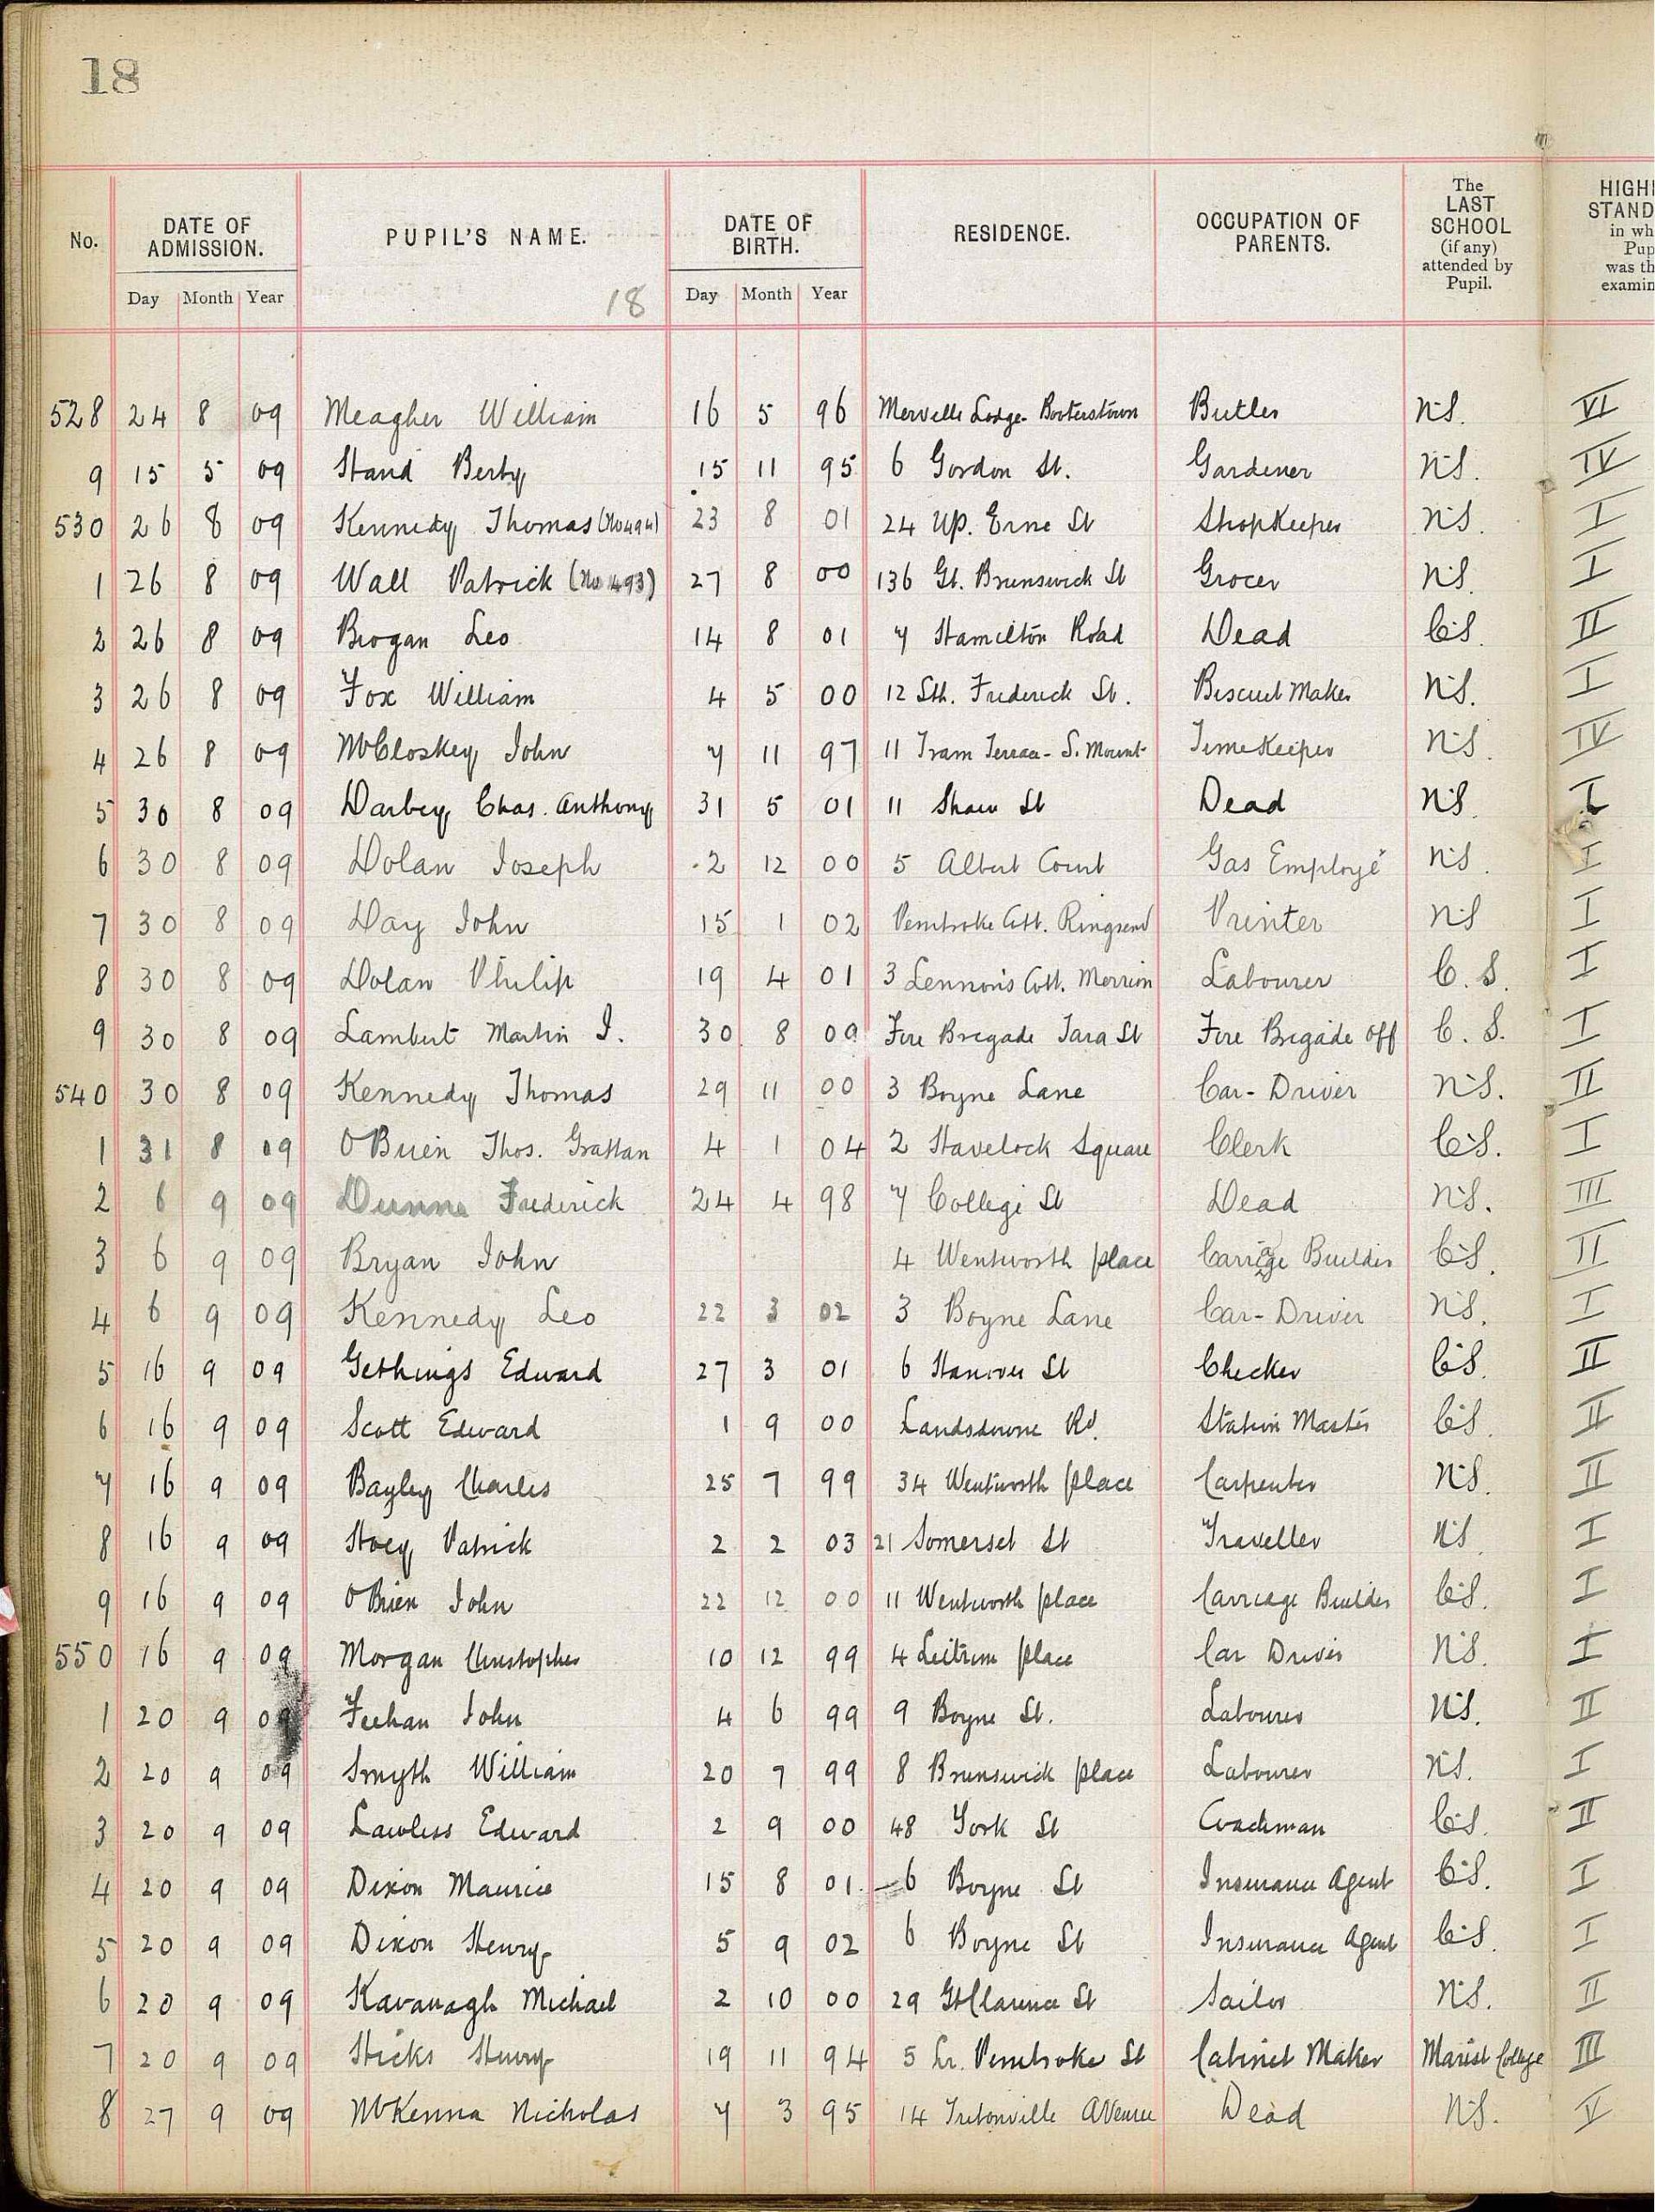 18
No.
DATE OF ADMISSION.
PUPIL'S NAME.
DATE OF BIRTH.
RESIDENCE.
OCCUPATION OF PARENTS.
The LAST SCHOOL (if any) attended by Pupil.
HIGH
STAND
in wh
Pup
was th
examin
Day Month Year
18
Day Month Year
528 24 8 09 Meagher William 16 5 96 Merville Lodge Booterstown Butler N.S. VI
9 15 5 09 Hand Berty 15 11 95 6 Gordon St. Gardener N.S. IV
530 26 8 09 Kennedy Thomas (No 494) 23 8 01 24 Up. Erne St ShopKeeper N.S. I
1 26 8 09 Wall Patrick (No 493) 27 8 00 136 Gt. Brunswick St Grocer N.S. I
2 26 8 09 Brogan Leo 14 8 01 7 Hamilton Road Dead C.S. II
3 26 8 09 Fox William 4 5 00 12 Sth. Frederick St. Biscuit Maker N.S. I
4 26 8 09 McCloskey John 7 11 97 11 Tram Terrace - S. Mount TimeKeeper N.S. IV
5 30 8 09 Darbey Chas. Anthony 31 5 01 11 Shaw St Dead N.S. I
6 30 8 09 Dolan Joseph 2 12 00 5 Albert Court Gas Employé N.S. I
7 30 8 09 Day John 15 1 02 Pembroke Cott. Ringsend Printer N.S I
8 30 8 09 Dolan Philip 19 4 01 3 Lennon's Cott. Merrion Labourer C. S. I
9 30 8 09 Lambert Martin J. 30 8 00 Fire Brigade Tara St Fire Brigade Off C. S. I
540 30 8 09 Kennedy Thomas 29 11 00 3 Boyne Lane Car-Driver N.S. II
1 31 8 09 O'Brien Thos. Grattan 4 1 04 2 Havelock Square Clerk C.S. I
2 6 9 09 Dunne Frederick 24 4 98 7 College St Dead N.S. III
3 6 9 09 Bryan John 4 Wentworth place Carriage Builder C.S. II
4 6 9 09 Kennedy Leo 22 3 02 3 Boyne Lane Car-Driver N.S. I
5 16 9 09 Gethings Edward 27 3 01 6 Hanover St Checker C.S. II
6 16 9 09 Scott Edward 1 9 00 Landsdowne Rd. Station Master C.S. II
7 16 9 09 Bayley Charles 25 7 99 34 Wentworth place Carpenter N.S. II
8 16 9 09 Hoey Patrick 2 2 03 21 Somerset St Traveller N.S. I
9 16 9 09 O'Brien John 22 12 00 11 Wentworth place Carriage Builder C.S. I
550 16 9 09 Morgan Christopher 10 12 99 4 Leitrim place Car Driver N.S. I
1 20 9 09 Feehan John 4 6 99 9 Boyne St. Labourer N.S. II
2 20 9 09 Smyth William 20 7 99 8 Brunswick place Labourer N.S. I
3 20 9 09 Lawless Edward 2 9 00 48 York St Coachman C.S. II
4 20 9 09 Dixon Maurice 15 8 01 6 Boyne St Insurance Agent C.S. I
5 20 9 09 Dixon Henry 5 9 02 6 Boyne St Insurance Agent C.S. I
6 20 9 09 Kavanagh Michael 2 10 00 29 Gt Clarence St Sailor N.S. II
7 20 9 09 Hicks Henry 19 11 94 5 Lr. Pembroke St Cabinet Maker Marist College III
8 27 9 09 McKenna Nicholas 7 3 95 14 Tritonville Avenue Dead N.S. V